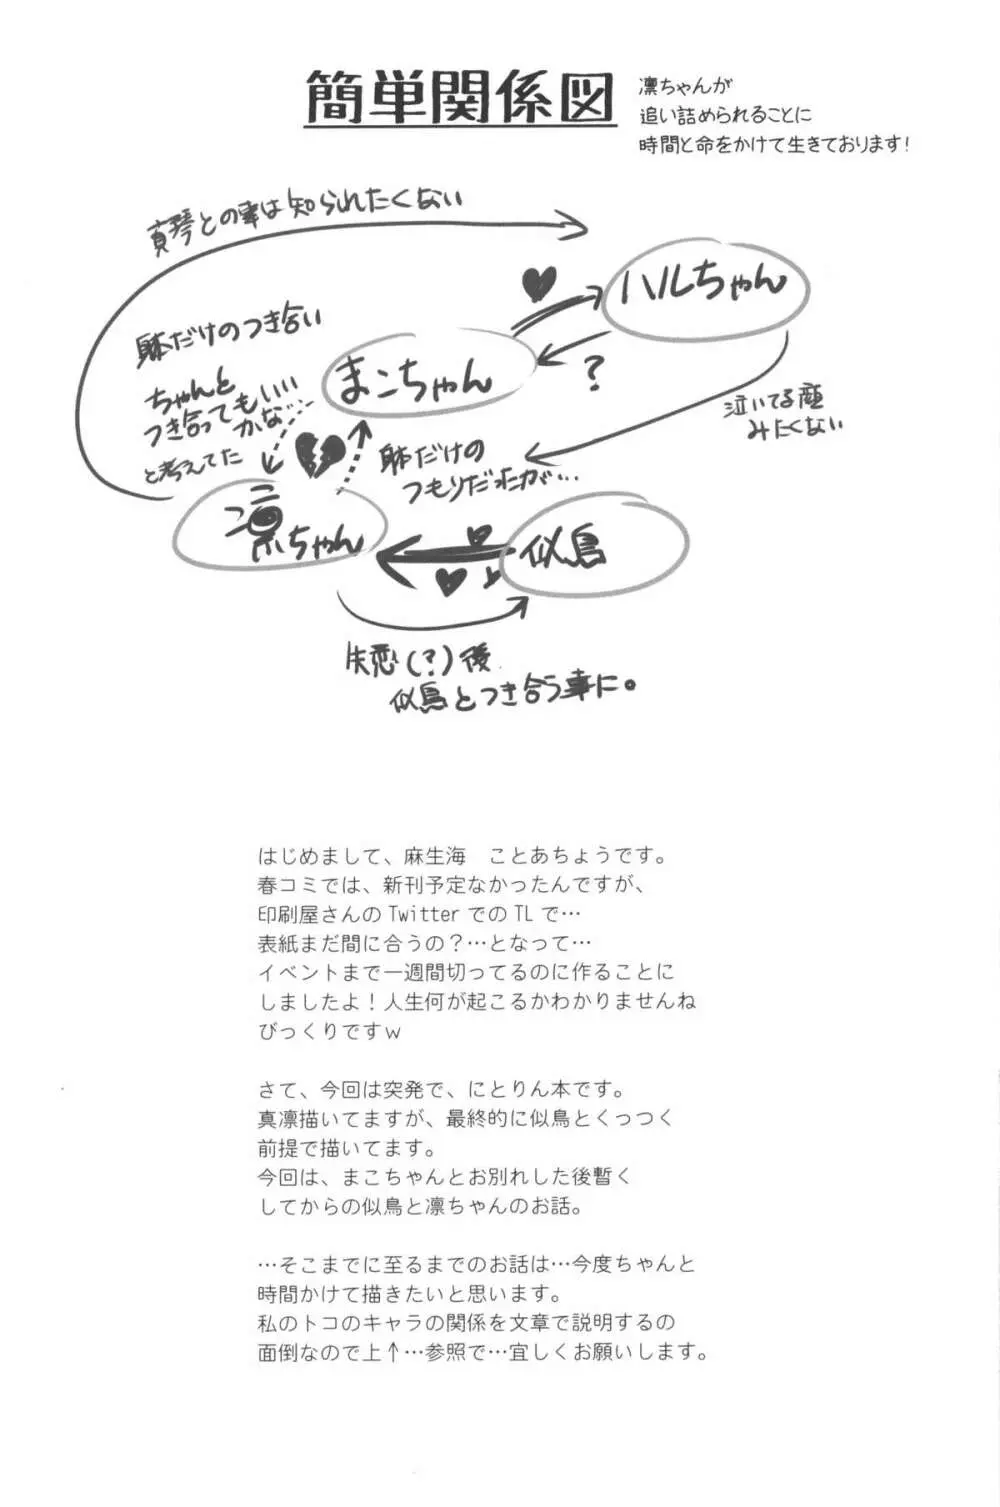 簡単関係図
凛ちゃんが
追い詰められることに
時間と命をかけて生きております!
真琴との事は知られたくない
ハルちゃん
躰だけのつき合い
まこちゃん
?
ちゃんと
つき合ってもいい
かな…
と考えてた
泣いてる顔
みたくない
躰だけの
つもりだったが…
凛ちゃん
似鳥
失恋(?)後
似鳥とつき合う事に。
はじめまして、麻生海　ことあちょうです。
春コミでは、新刊予定なかったんですが、
印刷屋さんのTwitterでのTLで…
表紙まだ間に合うの?…となって…
イベントまで一週間切ってるのに作ることに
しましたよ!人生何が起こるかわかりませんね
びっくりですw
さて、今回は突発で、にとりん本です。
真凛描いてますが、最終的に似鳥とくっつく
前提で描いてます。
今回は、まこちゃんとお別れした後暫く
してからの似鳥と凛ちゃんのお話。
…そこまでに至るまでのお話は…今度ちゃんと
時間かけて描きたいと思います。
私のトコのキャラの関係を文章で説明するの
面倒なので上↑…参照で…宜しくお願いします。